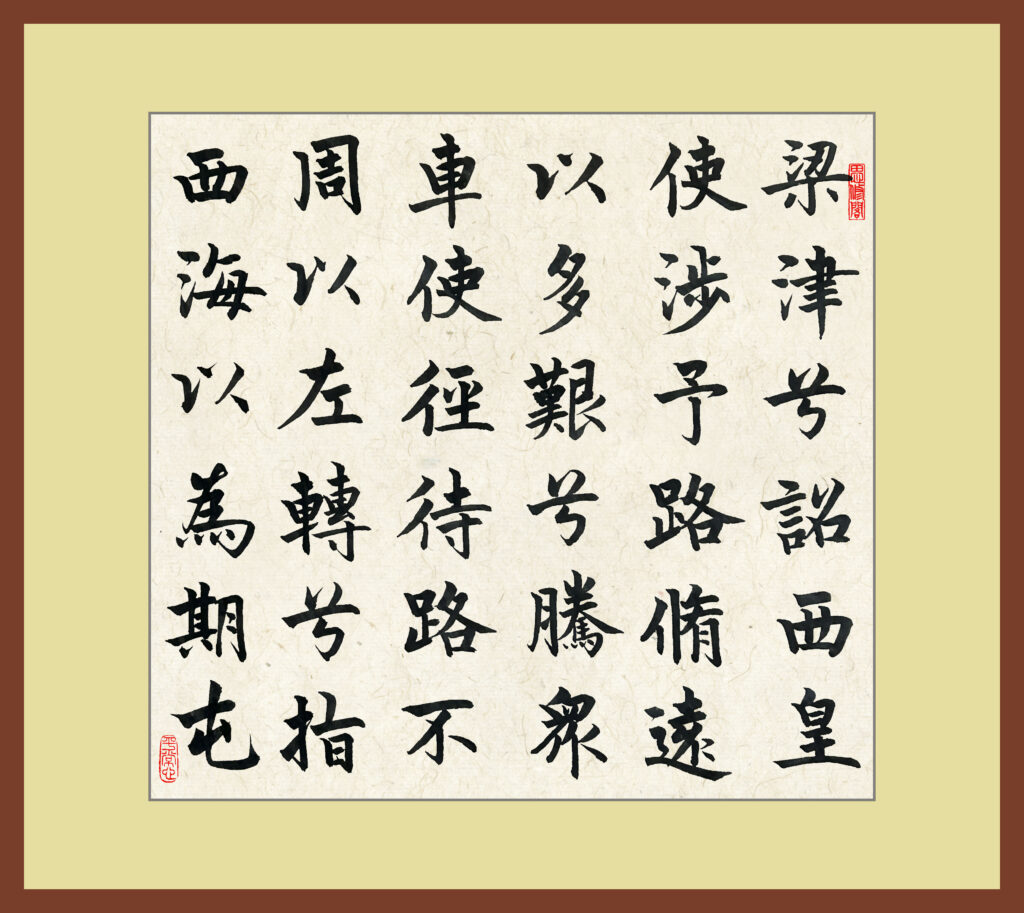 梁津兮詔西皇
使涉予路脩遠
以多艱兮騰衆
車使徑待路不
周以左轉兮指
西海以為期屯